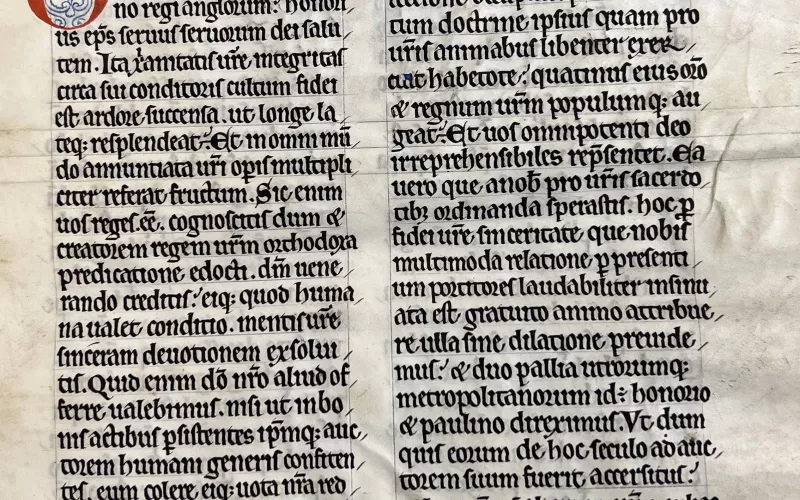 no regi anglorum: honori
us ep̃s seruus seruorum dei salu
tem. Ita xp̃ianitatis ur̃e integritas
circa sui conditoris cultum fidei
est ardore succensa. ut longe la
teq; resplendeat: Et in omni mũ
do annuntiata ur̃i op̃is multipli
citer referat fructum. Sic enim
uos reges eẽ. cognoscitis dum &
creatorem regem ur̃m orthodoxa
predicatione edocti. dm̃ uene
rando creditis: eiq; quod huma
na ualet conditio. mentis ur̃e
sinceram deuotionem exsolui
tis. Quid enim dõ nr̃o aliud of
ferre ualebimus. nisi ut in bo
nis actibus p̱sistentes ip̃mq; auc
torem humani generis confiten
tes. eum colere eiq; uota nr̃a red
tum doctrine ipsius quam pro
ur̃is animabus libenter exer
cuit habetote: quatinus eius orõ
& regnum ur̃m populumq; au
geat: Et uos omnipotenti deo
irreprehensibiles rep̃sentet. Ea
uero que a nob̃ pro ur̃is sacerdo
tib; ordinanda sperastis. hoc p̱
fidei ur̃e sinceritate que nobis
multimoda relatione p̱ presenti
um portitores laudabiliter insinu
ata est gratuito animo attribue
re ulla sine dilatione preuide
mus: & duo pallia utrorumq;
metropolitanorum id: honorio
& paulino direximus. Vt dum
quis eorum de hoc seculo ad auc
torem suum fuerit accersitus: